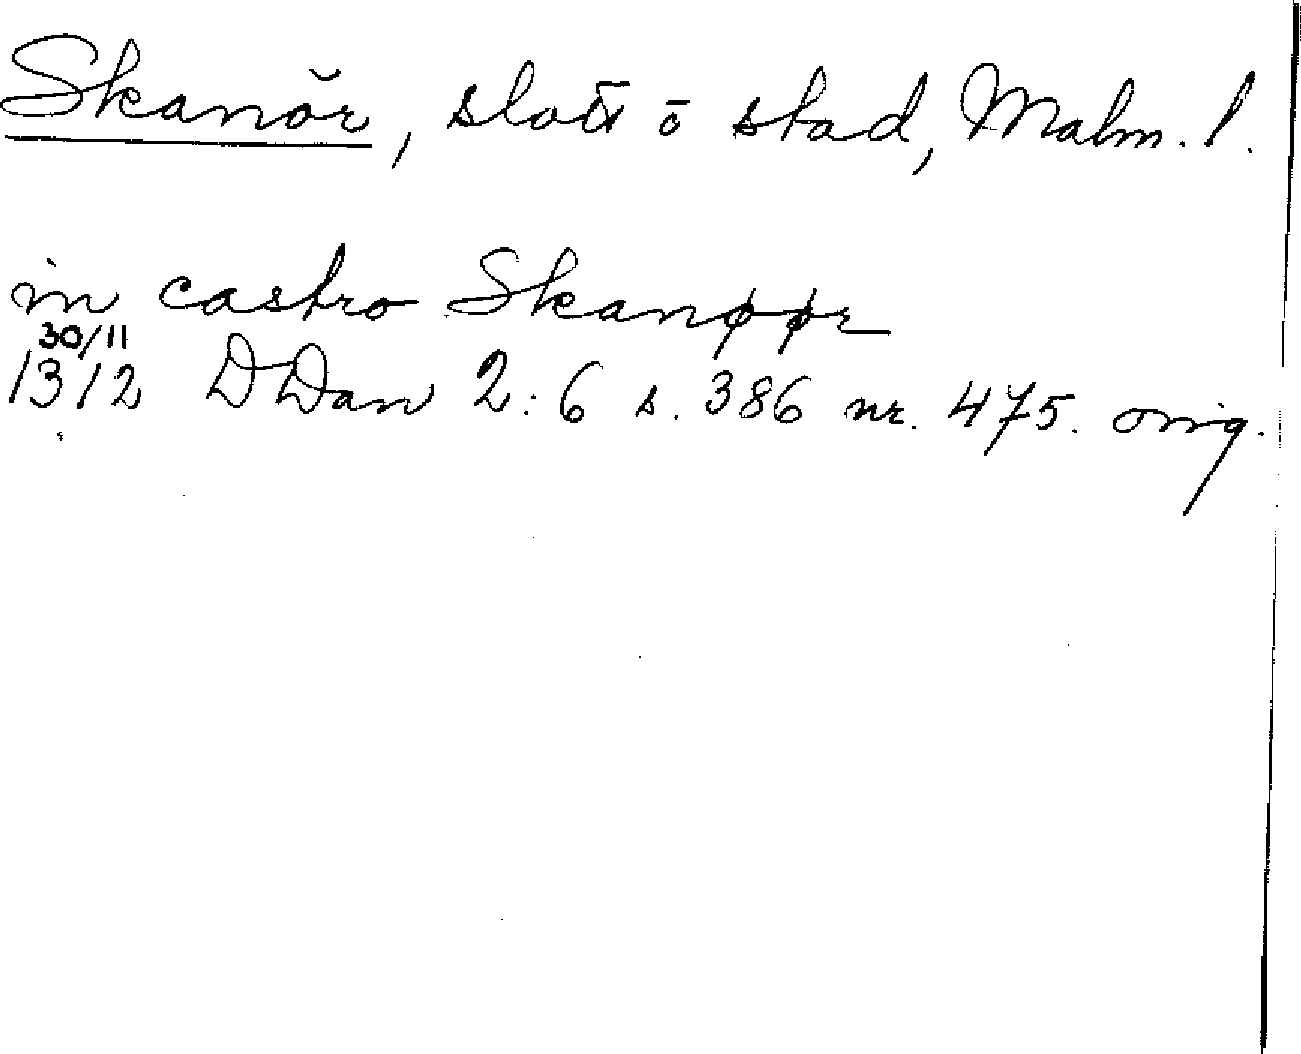 Skanör, slott ō stad, Malm. l.
in castro Skanøør
30/11
1312 DDan 2:6 s. 386 nr. 475. orig.